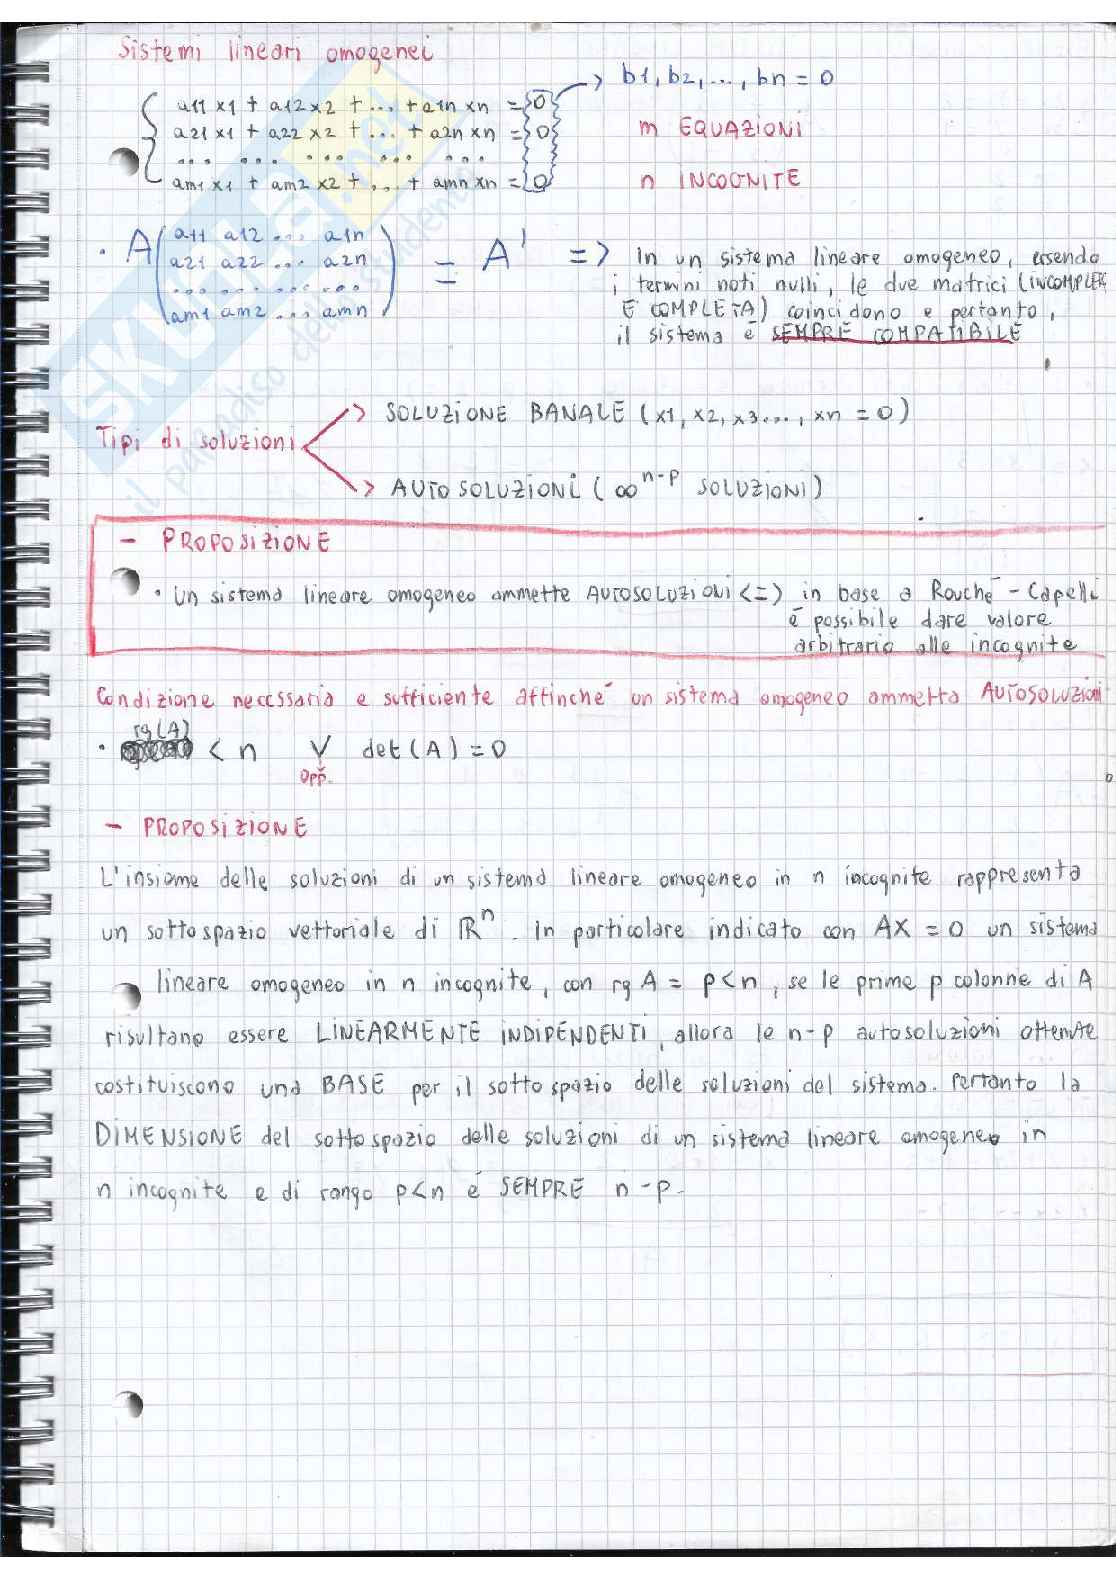 Sistemi lineari omogenei
b1, b2, ..., bn = 0
a11 x1 + a12 x2 + ... + a1n xn = 0
a21 x1 + a22 x2 + ... + a2n xn = 0
... ... ... ... ...
am1 x1 + am2 x2 + ... + amn xn = 0
m EQUAZIONI
n INCOGNITE
· A ( a11 a12 ... a1n
a21 a22 ... a2n
... ... ... ...
am1 am2 ... amn ) = A' =>
In un sistema lineare omogeneo, essendo
i termini noti nulli, le due matrici (INCOMPLETA
E COMPLETA) coincidono e pertanto,
il sistema é SEMPRE COMPATIBILE
Tipi di soluzioni
> SOLUZIONE BANALE (x1, x2, x3..., xn = 0)
> AUTOSOLUZIONI (∞^n-p SOLUZIONI)
- PROPOSIZIONE
· Un sistema lineare omogeneo ammette AUTOSOLUZIONI <=> in base a Rouché - Capelli
é possibile dare valore
arbitrario alle incognite
Condizione necessaria e sufficiente affinché un sistema omogeneo ammetta AUTOSOLUZIONI
· rg(A) < n V det(A) = 0
opp.
- PROPOSIZIONE
L'insieme delle soluzioni di un sistema lineare omogeneo in n incognite rappresenta
un sottospazio vettoriale di ℝ^n. In particolare indicato con AX = 0 un sistema
lineare omogeneo in n incognite, con rg A = p < n, se le prime p colonne di A
risultano essere LINEARMENTE INDIPENDENTI, allora le n-p autosoluzioni ottenute
costituiscono una BASE per il sottospazio delle soluzioni del sistema. Pertanto la
DIMENSIONE del sottospazio delle soluzioni di un sistema lineare omogeneo in
n incognite e di rango p<n é SEMPRE n-p.
SKUOLA.net
il paradiso dello studente